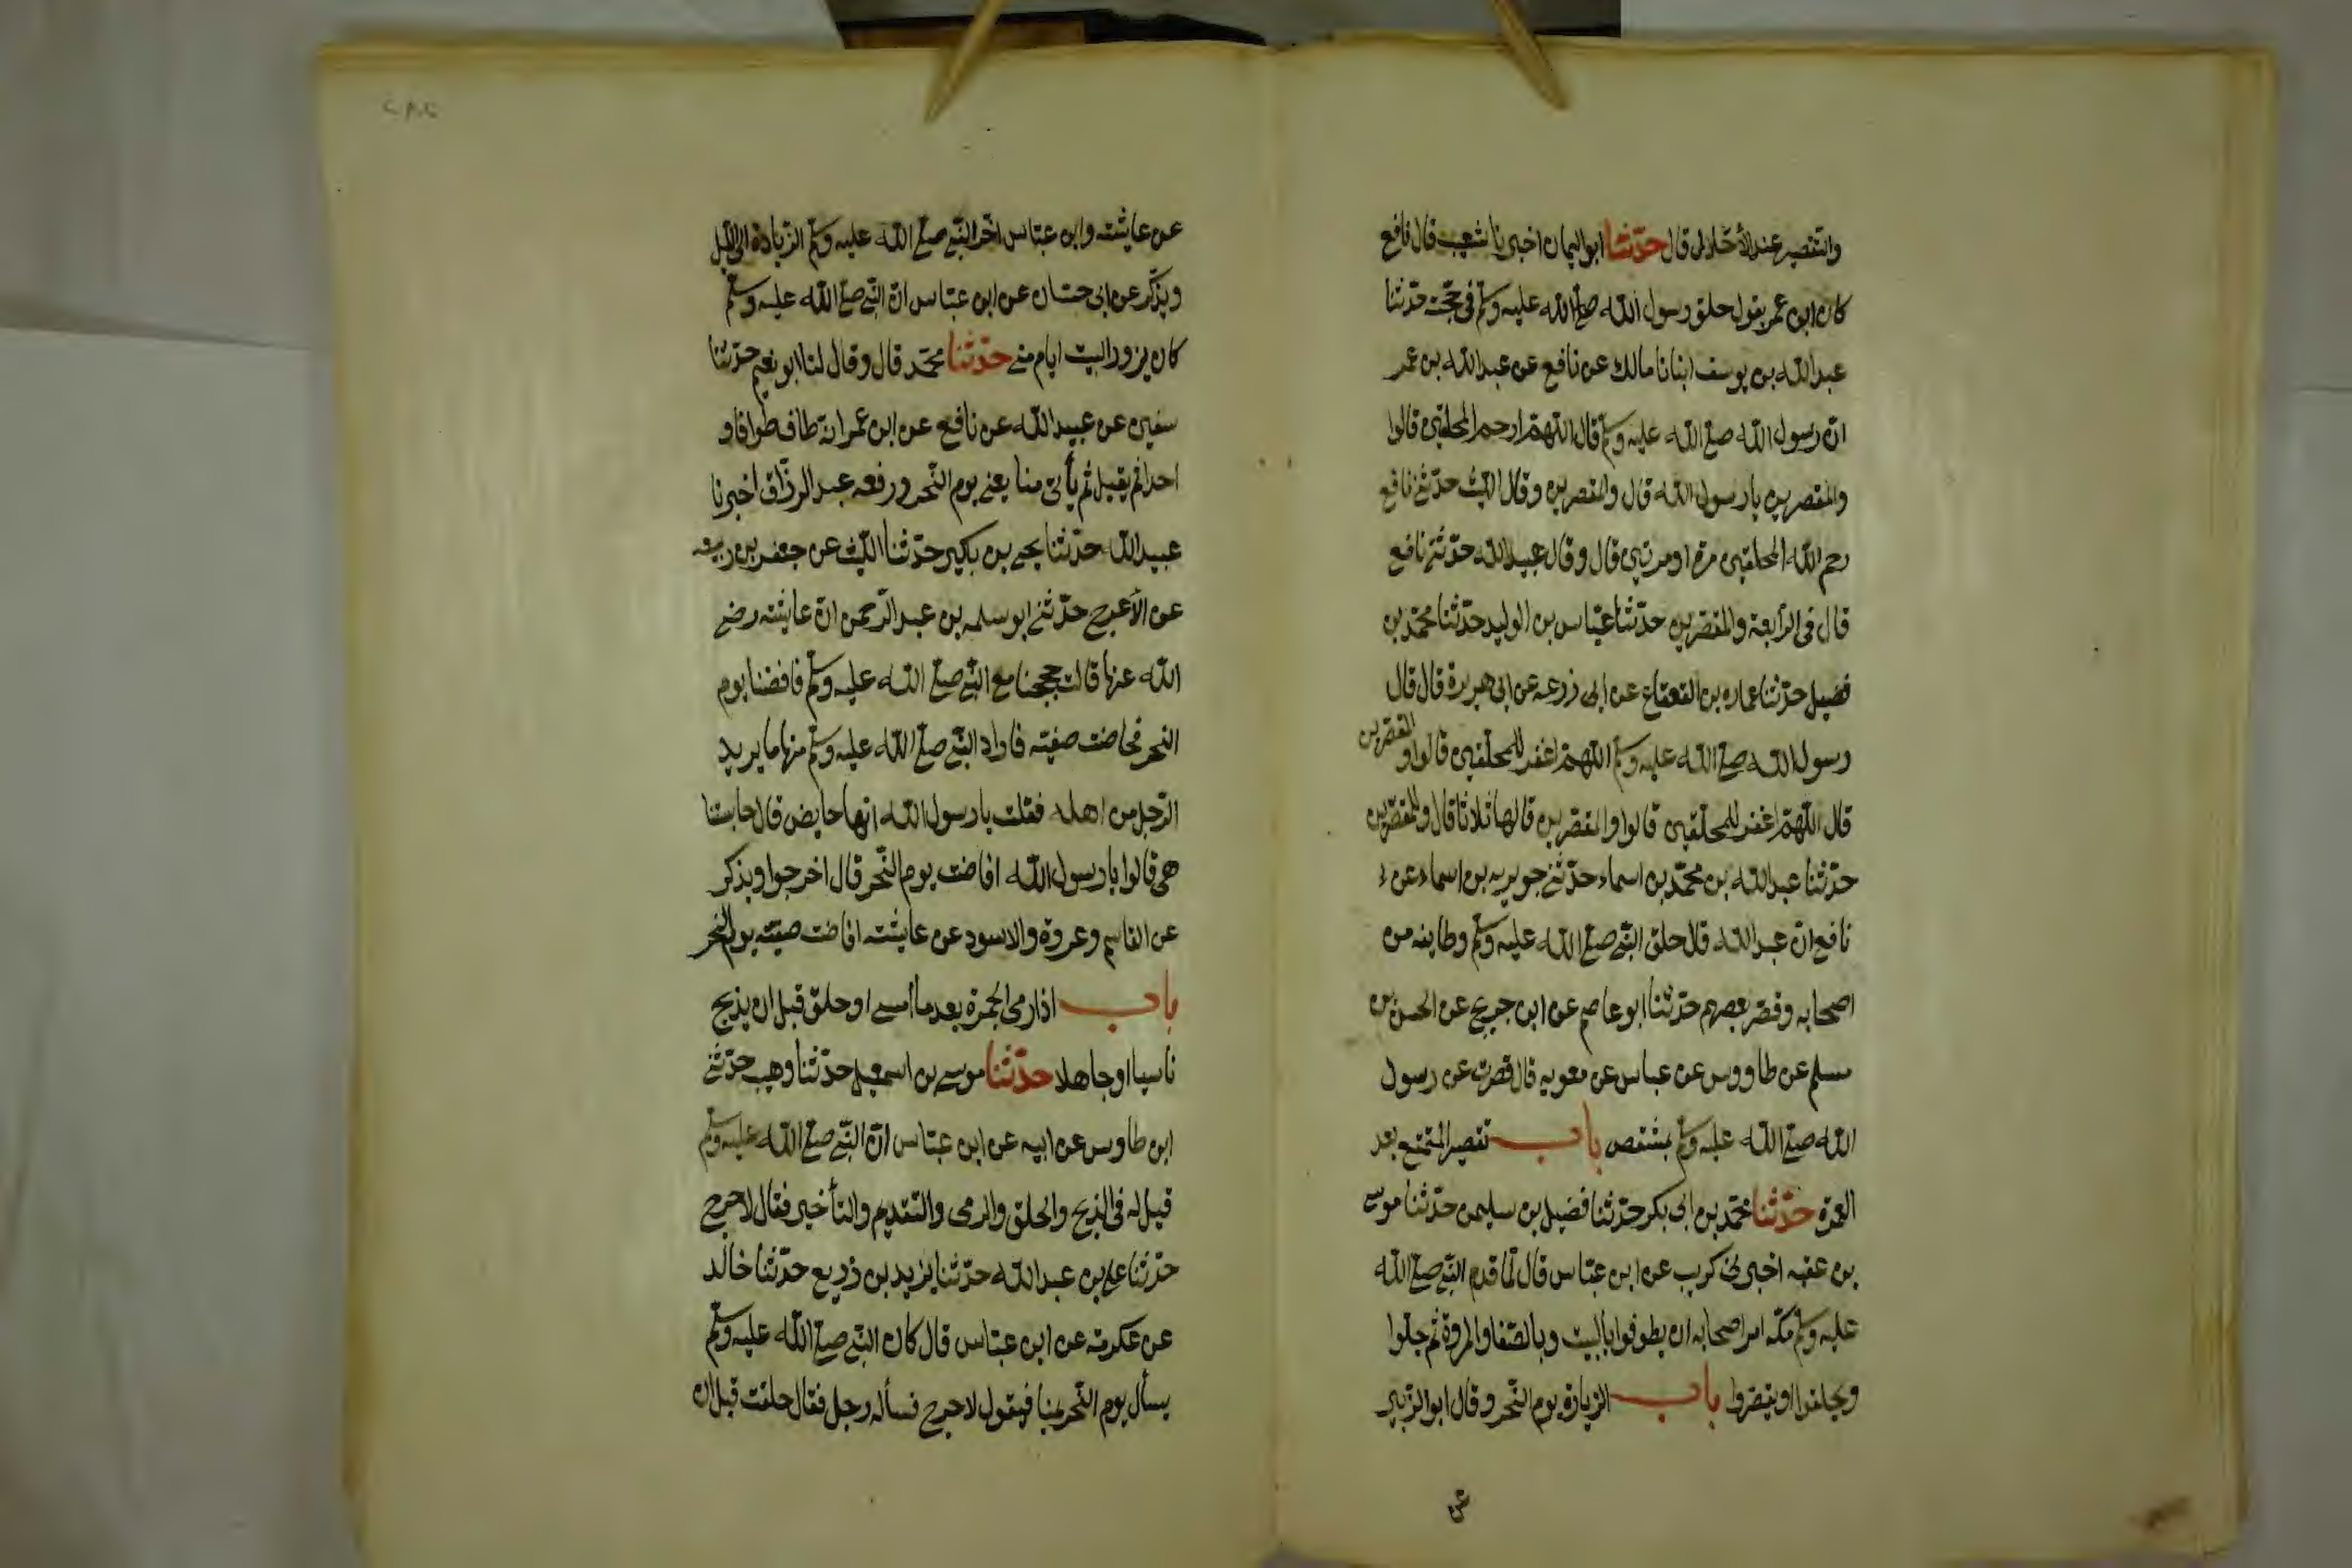 والتقصير عند الأحلال قال حدّثنا ابو اليمان اخبرنا شعيب قال نافع
كان ابن عمر يقول حلق رسول الله صلى الله عليه وسلم في حجّته حدّثنا
عبد الله بن يوسف انبانا مالك عن نافع عن عبد الله بن عمر
انّ رسول الله صلى الله عليه وسلم قال اللهمّ ارحم المحلقين قالوا
والمقصرين يا رسول الله قال والمقصرين وقال الليث حدّثنى نافع
رحم الله المحلقين مرة او مرتين قال وقال عبيد الله حدّثنى نافع
قال فى الرّابعة والمقصّرين حدّثنا عيّاس بن الوليد حدّثنا محمّد بن
فضيل حدّثنا عماره بن القعقاع عن ابى زرعه عن ابى هريرة قال قال
رسول الله صلى الله عليه وسلم اللهمّ اغفر للمحلّقين قالوا والمقصّرين
قال اللهمّ اغفر للمحلّقين قالوا والمقصّرين قالها ثلاثا قال وللمقصّرين
حدّثنا عبد الله بن محمّد بن اسماء حدّثنى جويريه بن اسماء عن
نافع انّ عبد الله قال حلق النّبى صلى الله عليه وسلم وطايفه من
اصحابه وقصّر بعضهم حدّثنا ابو عاصم عن ابن جريج عن الحسن بن
مسلم عن طاووس عن عباس عن معويه قال قصّرت عن رسول
الله صلى الله عليه وسلم بمشقص باب تقصير المتمتع بعد
العمرة حدّثنا محمّد بن ابى بكر حدّثنا فضيل بن سليمن حدّثنا موسى
بن عقبه اخبرنى كريب عن ابن عبّاس قال لمّا قدم النّبى صلى الله
عليه وسلم مكّه امر اصحابه ان يطوفوا بالبيت وبالصّفا والمروة ثم يحلّوا
ويحلقوا او يقصّروا باب الزيارة يوم النّحر وقال ابو الزّبير
عن
عن عايشته وابن عبّاس اخّر النّبى صلى الله عليه وسلم الزّيادة الى اللّيل
ويذكر عن ابى حسّان عن ابن عبّاس انّ النّبى صلى الله عليه وسلم
كان يزور البيت ايام منى حدّثنا محمّد قال وقال لنا ابو نعيم حدّثنا
سفين عن عبيد الله عن نافع عن ابن عمر انّه طاف طوافا و
احدا ثم يقيل ثم يأتى منا يعنى يوم النّحر ورفعه عبد الرزّاق اخبرنا
عبيد الله حدّثنا يحيى بن بكير حدّثنا الليث عن جعفر بن ربيعه
عن الأعرج حدّثنى ابو سلمه بن عبد الرّحمن انّ عايشته رضى
الله عنها قالت حججنا مع النّبى صلى الله عليه وسلم فافضنا يوم
النحر فحاضت صفيّه فاراد النّبى صلى الله عليه وسلم منها ما يريد
الرّجل من اهله فقلت يا رسول الله انّها حايض قال حابستنا
هى قالوا يا رسول الله افاضت يوم النّحر قال اخرجوا ويذكر
عن القاسم وعروة والاسود عن عايشته افاضت صفيّه يوم النّحر
باب اذا رمى الجمرة بعد ما أمسى او حلق قبل ان يذبح
ناسيا او جاهلا حدّثنا موسى بن اسمعيل حدّثنا وهيب حدّثنى
ابن طاوس عن ابيه عن ابن عبّاس انّ النّبى صلى الله عليه وسلم
قيل له فى الذّبح والحلق والرمى والتّقديم والتأخير فقال لا حرج
حدّثنا على بن عبد الله حدّثنا يزيد بن زريع حدّثنا خالد
عن عكرمه عن ابن عبّاس قال كان النّبى صلى الله عليه وسلم
يسأل يوم النّحر بمنا فيقول لا حرج فسأله رجل فقال حلقت قبل ان